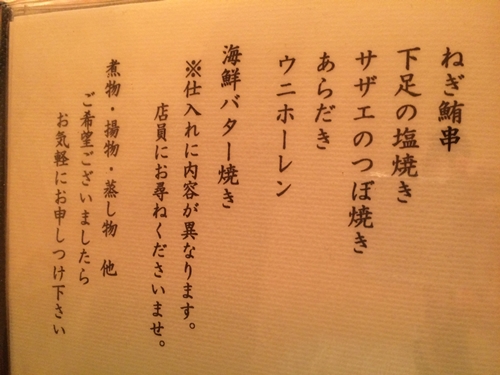 ねぎ鮪串
下足の塩焼き
サザエのつぼ焼き
あらだき
ウニホーレン
海鮮バター焼き
※仕入れに内容が異なります。
店員にお尋ねくださいませ。
煮物・揚物・蒸し物 他
ご希望ございましたら
お気軽にお申しつけ下さい